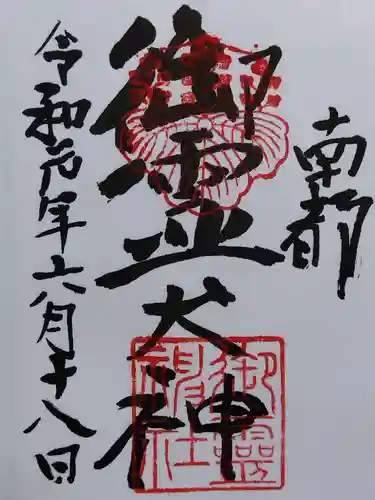 南都
御霊大神
令和元年六月十八日
御靈
神社